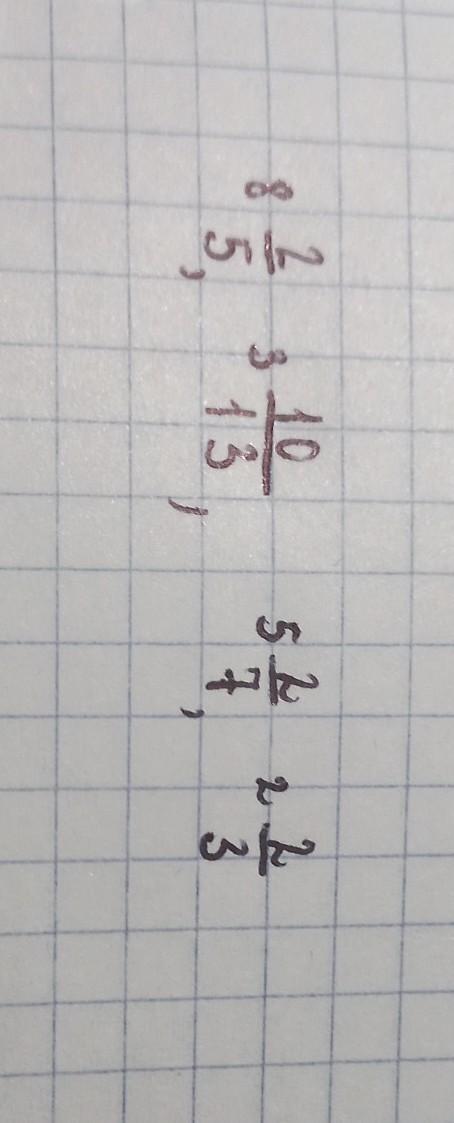 8 2/5, 3 10/13, 5 2/7, 2 2/3